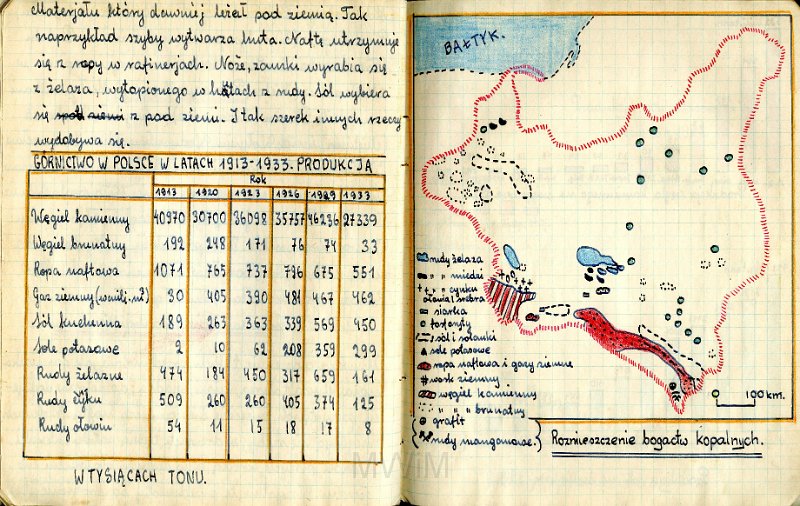 Materjału który dawniej leżał pod ziemią. Tak
naprzykład szyby wytwarza huta. Naftę utrzymuje
się z ropy w rafinerjach. Noże, zamki wyrabia się
z żelaza, wytopionego w hutach z rudy. Sól wybiera
się spod ziemi z pod ziemi. I tak szerek innych rzeczy
wydobywa się.
GÓRNICTWO W POLSCE W LATACH 1913-1933. PRODUKCJA
Rok
1913 1920 1923 1926 1929 1933
Węgiel kamienny 40970 30700 36098 35757 46236 27339
Węgiel brunatny 192 248 171 76 74 33
Ropa naftowa 1071 765 737 796 675 551
Gaz ziemny (w milj. m³) 30 405 390 481 467 462
Sól kuchenna 189 263 363 339 569 450
Sole potasowe 2 10 62 208 359 299
Rudy żelazne 474 184 450 317 659 161
Rudy cynku 509 260 260 405 374 125
Rudy ołowiu 54 11 15 18 17 8
W TYSIĄCACH TONU.
MWiM
BAŁTYK.
rudy żelaza
" " miedzi
" " cynku
ołowiu i srebra
siarka
fosforyty
sól i solanki
sole potasowe
ropa naftowa i gazy ziemne
wosk ziemny
węgiel kamienny
" " brunatny
grafit
(rudy manganowe.)
0 100 km.
Rozmieszczenie bogactw kopalnych.